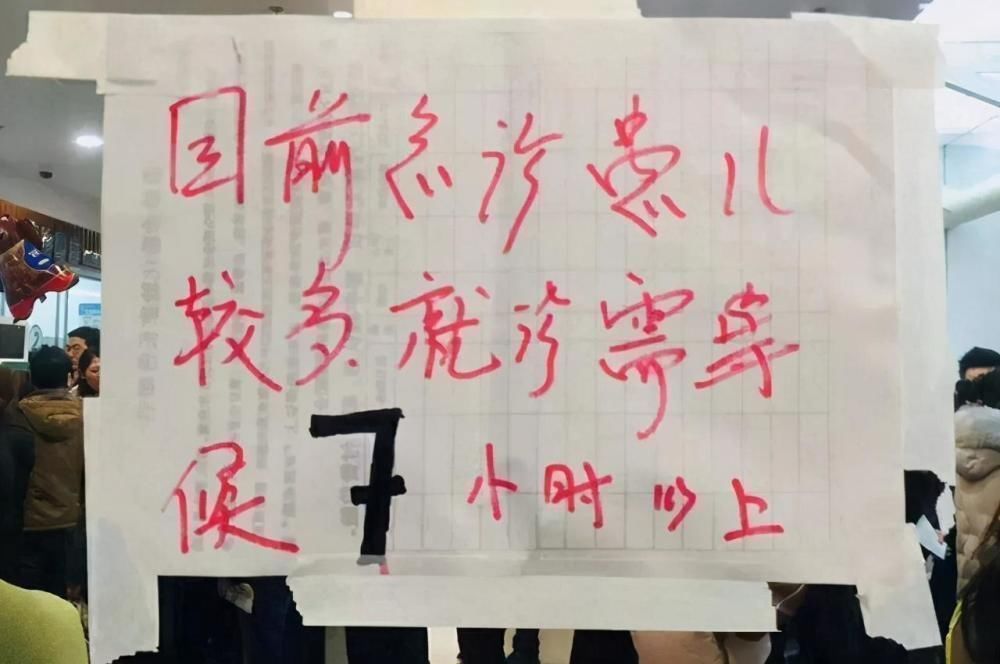 目前急诊患儿
较多.就诊需等
候7小时以上